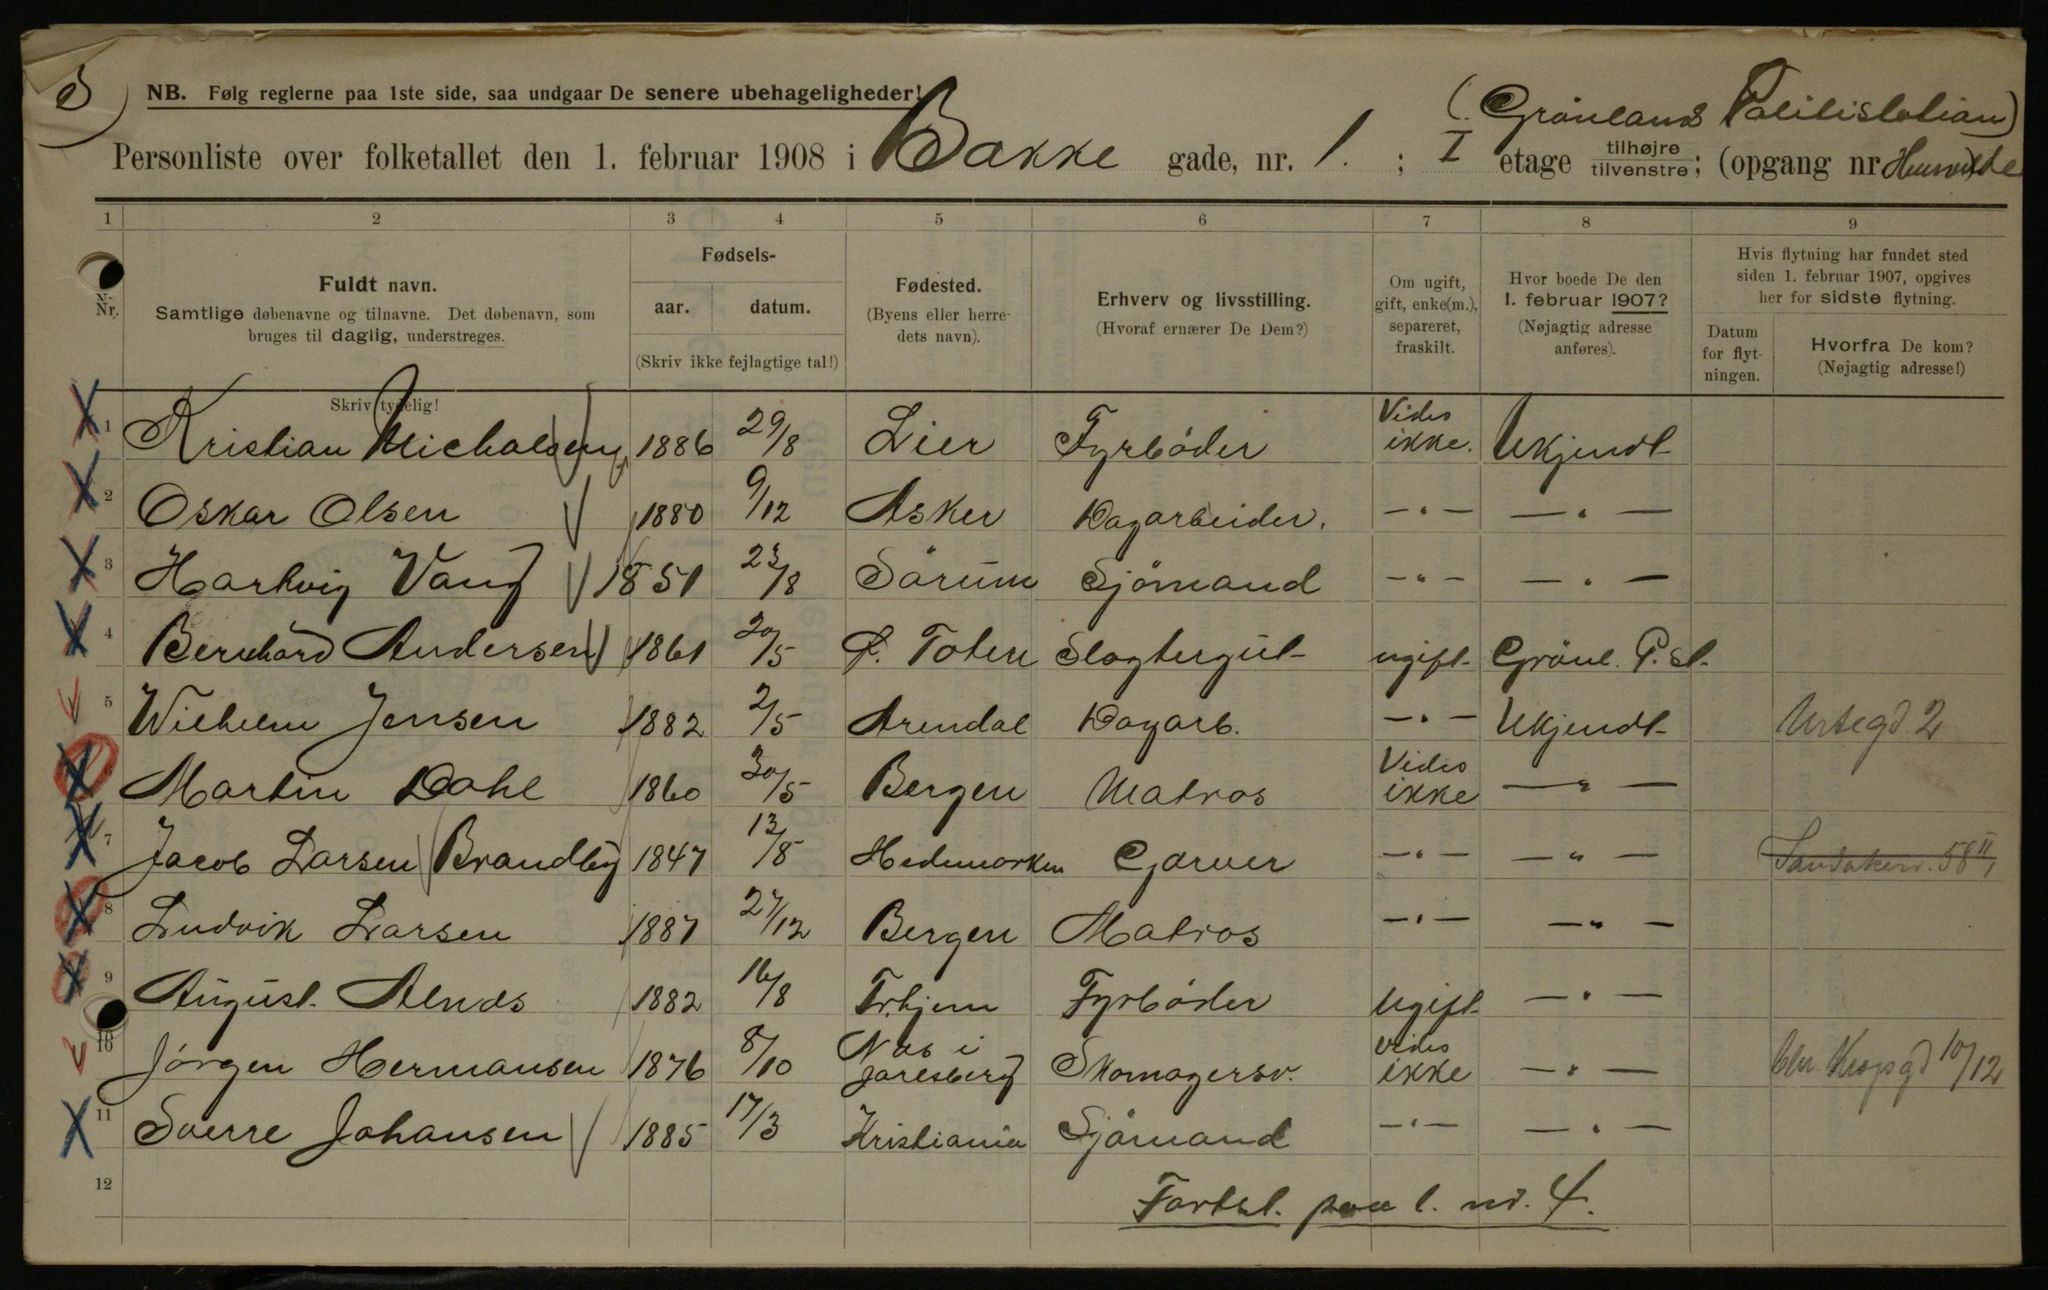 3)
NB. Følg reglerne paa 1ste side, saa undgaar De senere ubehageligheder!
(Grönlands Politistation)
Personliste over folketallet den 1. februar 1908 i Bakke gade, nr. 1. ; I etage tilhøjre tilvenstre; (opgang nr
1 2 3 4 5 6 7 8 9
Nr.
Fuldt navn.
Samtlige døbenavne og tilnavne. Det døbenavn, som
bruges til daglig, understreges.
Skriv tydelig!
Fødsels-
aar. datum.
(Skriv ikke fejlagtige tal!)
Fødested.
(Byens eller herre-
dets navn).
Erhverv og livsstilling.
(Hvoraf ernærer De Dem?)
Om ugift,
gift, enke(m.),
separeret,
fraskilt.
Hvor boede De den
1. februar 1907?
(Nøjagtig adresse
anføres).
Hvis flytning har fundet sted
siden 1. februar 1907, opgives
her for sidste flytning.
Datum
for flyt-
ningen.
Hvorfra De kom?
(Nøjagtig adresse!)
1 Kristian Micholsen 1886 29/8 Lier Fyrböder Vides ikke. Ukjendt
2 Oskar Olsen 1880 9/12 Asker Dagarbeider. — " — — " —
3 Hartvig Vang 1851 23/8 Sörum Sjömand — " — — " —
4 Bernhard Andersen 1861 20/5 Ö. Toten Slagtergut ugift Grönl. P. st.
5 Wilhelm Jensen 1882 2/5 Arendal Dagarb. — " — Ukjendt Urtegd. 2
Martin Dahl 1860 30/5 Bergen Matros Vides ikke — " —
7 Jacob Larsen Brandby 1847 13/8 Hedemarken Garver — " — — " — Sandakerv. 58 II
8 Ludvik Larsen 1887 27/12 Bergen Matros — " — — " —
9 August Alnds 1882 16/8 Tr.hjem Fyrböder Ugift — " —
10 Jörgen Hermansen 1876 8/10 Næs i Jarlsberg Skomagersv. vides ikke — " — Chr. Krogsgd 10/12
11 Sverre Johansen 1885 17/3 Kristiania Sjömand — " — — " —
12 Fortst. paa l. nr. 4.